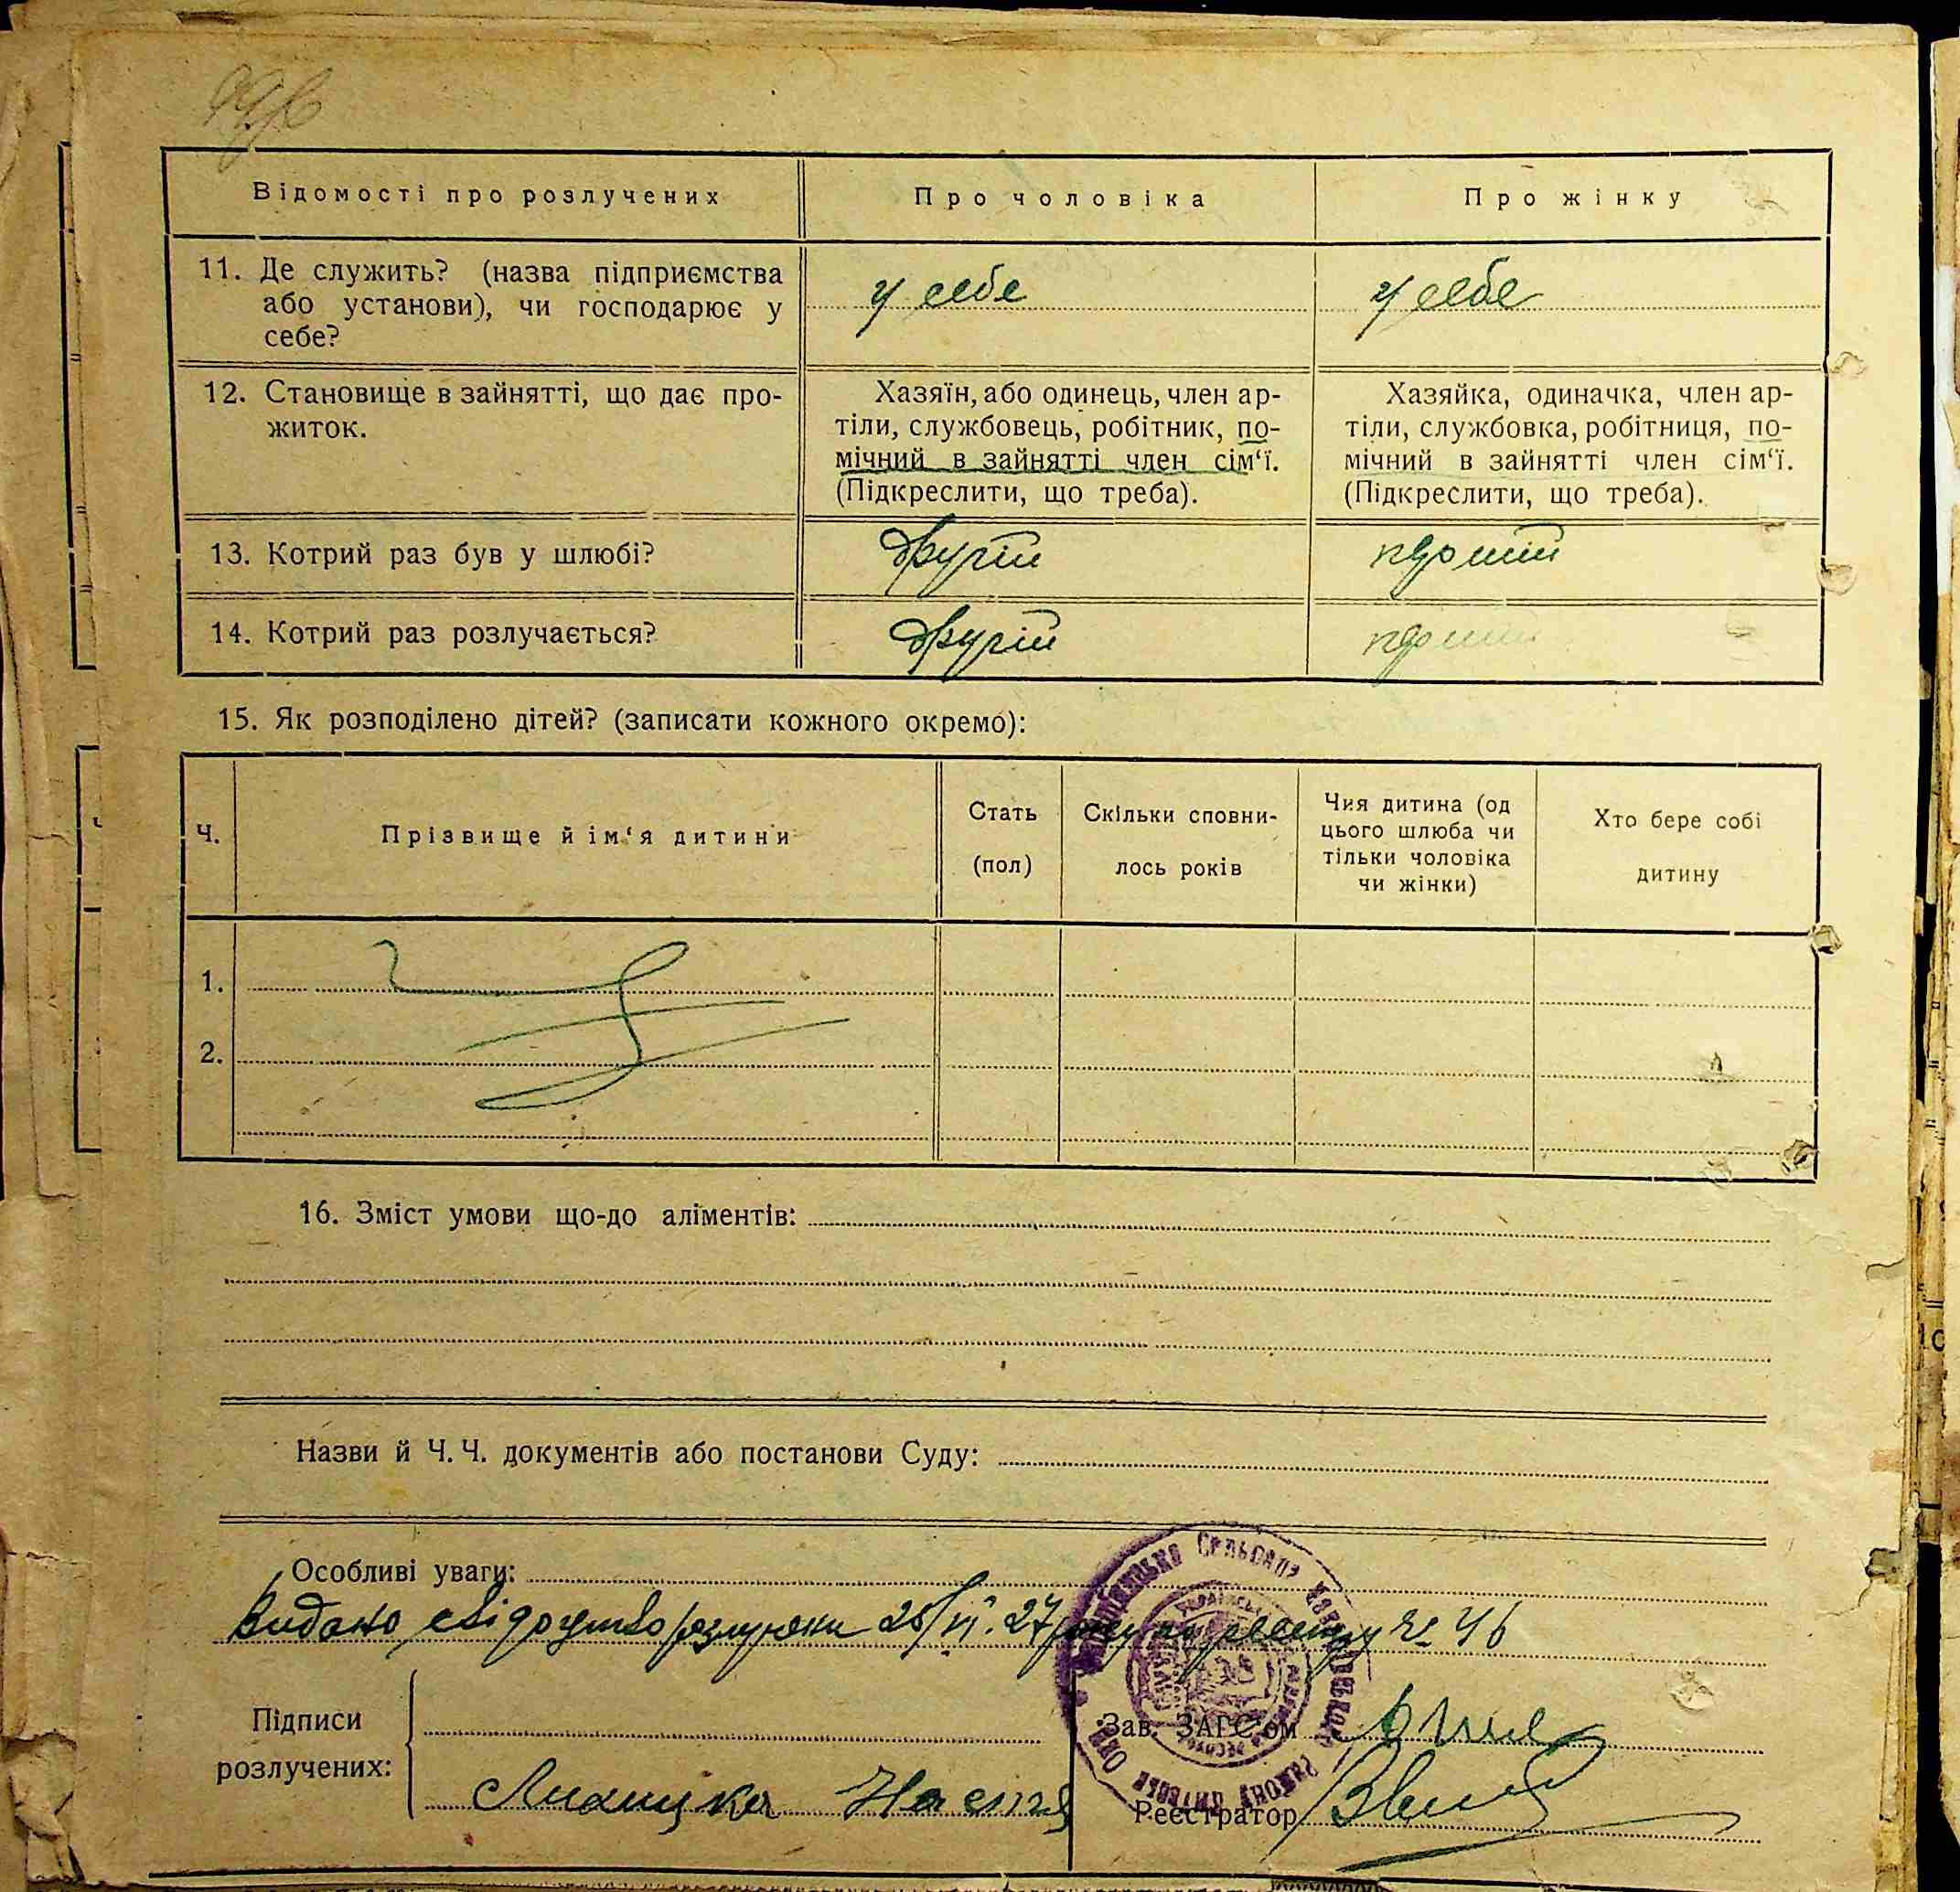 Відомості про розлучених Про чоловіка Про жінку
11. Де служить? (назва підприємства
або установи), чи господарює у
себе?
у себе у себе
12. Становище в зайнятті, що дає про-
житок.
Хазяїн, або одинець, член ар-
тіли, службовець, робітник, по-
мічний в зайнятті член сім‘ї.
(Підкреслити, що треба).
Хазяйка, одиначка, член ар-
тіли, службовка, робітниця, по-
мічний в зайнятті член сім‘ї.
(Підкреслити, що треба).
13. Котрий раз був у шлюбі? другій першій
14. Котрий раз розлучається? другій першій
15. Як розподілено дітей? (записати кожного окремо):
Ч.
Прізвище й ім‘я дитини
Стать
(пол)
Скільки сповни-
лось років
Чия дитина (од
цього шлюба чи
тільки чоловіка
чи жінки)
Хто бере собі
дитину
1.
2.
16. Зміст умови що-до аліментів:
Назви й Ч. Ч. документів або постанови Суду:
Особливі уваги:
Видано свідоцтво розлуки 25/VI. 27 року по реестру № 46
Підписи
розлучених:
Настя
Зав. ЗАГС‘ом
Реєстратор